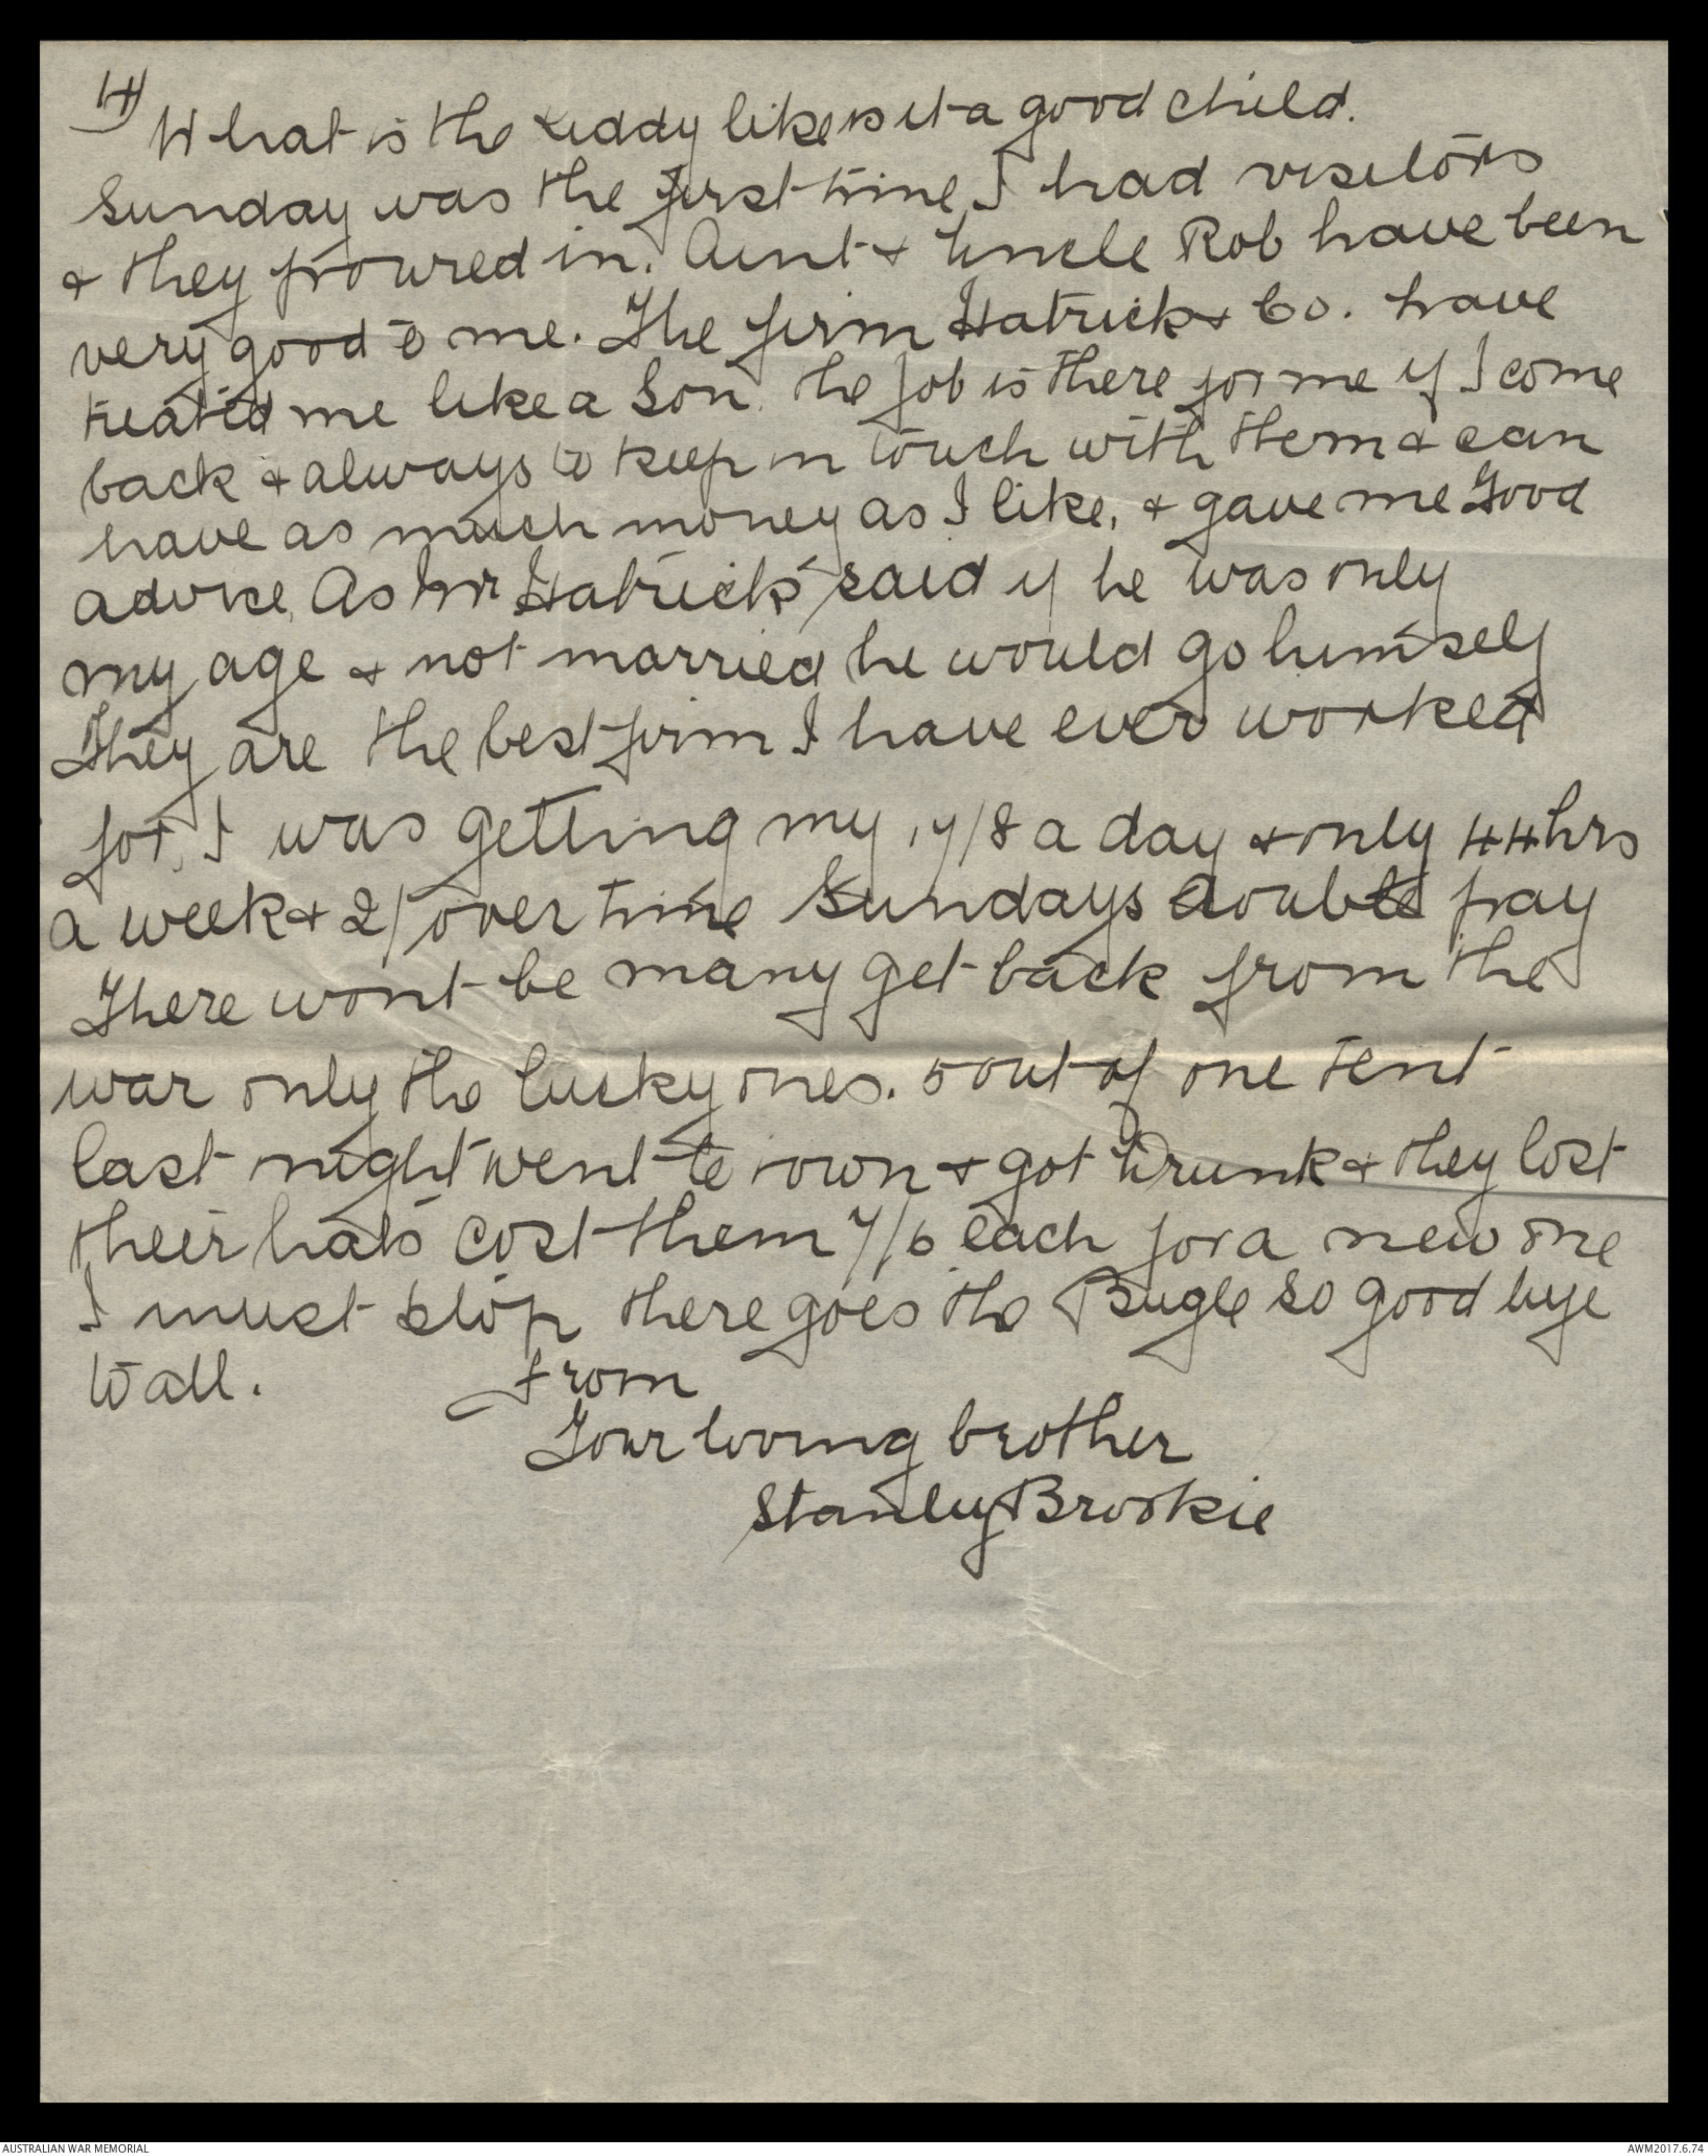 4)
What is the kiddy like is it a good child.
Sunday was the first time I had visitors
& they poured in. Aunt & Uncle Rob have been
very good to me. The firm Hatrick & Co. have
treated me like a Son. the job is there for me if I come
back & always to keep in touch with them & can
have as much money as I like, & gave me Good
advise. As Mr Hatrick said if he was only
my age & not married he would go himself
They are the best firm I have ever worked
for, I was getting my 17/8 a day & only 44hrs
a week & 2/ over time Sundays double pay
There wont be many get back from the
war only the lucky ones. 5 out of one tent
last night went to town & got Drunk & they lost
their hats cost them 7/6 each for a new one
I must stop there goes the Bugle so good bye
to all.
From
Your loving brother
Stanley Brookie
AUSTRALIAN WAR MEMORIAL
AWM2017.6.74